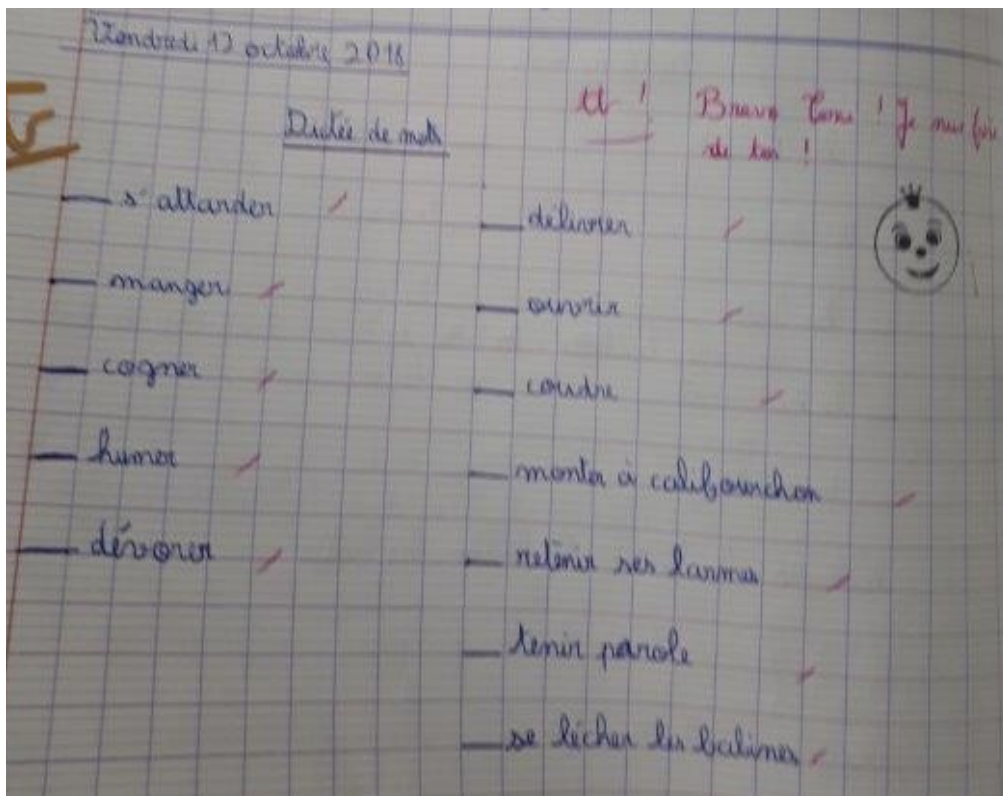 Vendredi 12 octobre 2018
Dictée de mots
tt ! Bravo ! Je suis
de toi !
— s'attarder
— manger
— cogner
— humer
— dévorer
— délivrer
— ouvrir
— coudre
— monter à califourchon
— retenir ses larmes
— tenir parole
— se lécher les babines